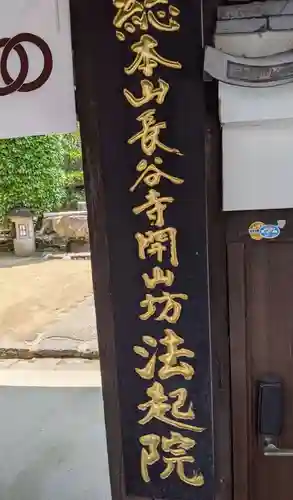 総本山長谷寺開山坊法起院